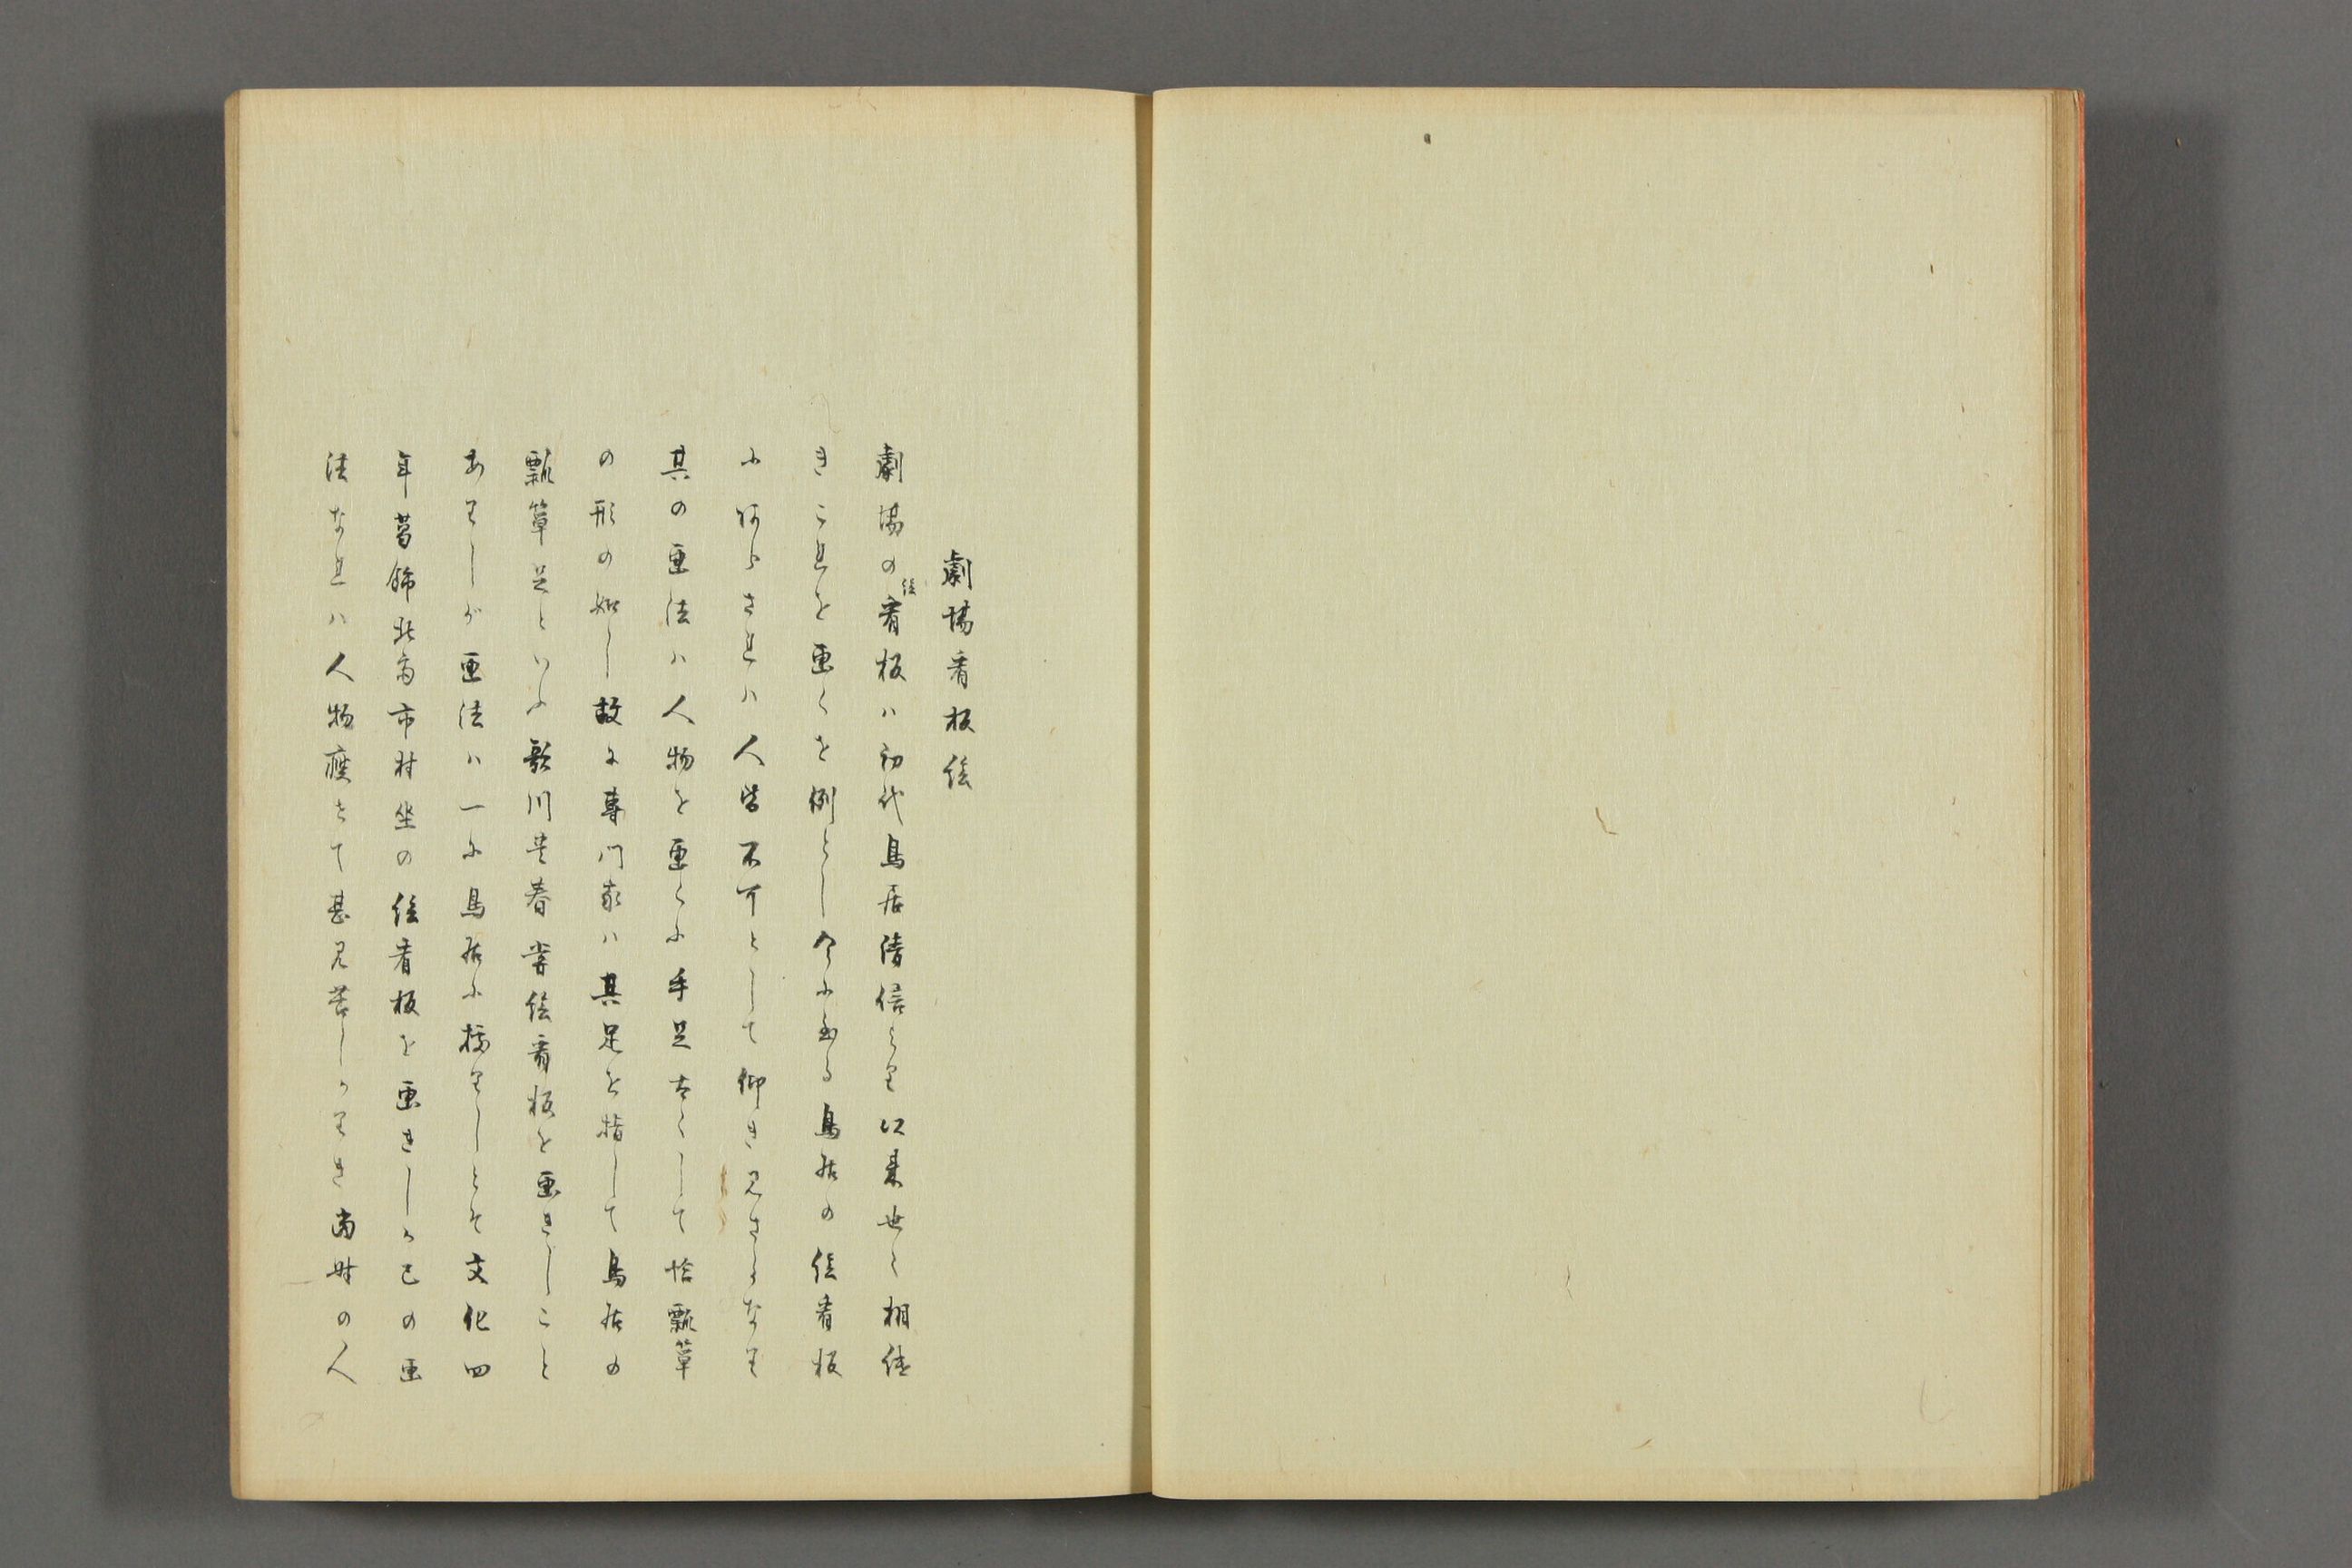 劇場看板絵
劇場の絵看板ハ初代鳥居清信より以来世〻相伝
きこれを画くを例とし今に至る鳥居の絵看板
にあらされハ人皆不可として仰き見さるなり
其の画法ハ人物を画くに手足太くして恰瓢箪
の形の如し故に専門家ハ其足を指して鳥居の
瓢箪足といふ歌川豊春嘗絵看板を画きしこと
ありしが画法ハ一に鳥居に拠りしとそ文化四
年葛飾北斎市村坐の絵看板を画きしか己の画
法なれハ人物痩せて甚見苦しかりき当時の人